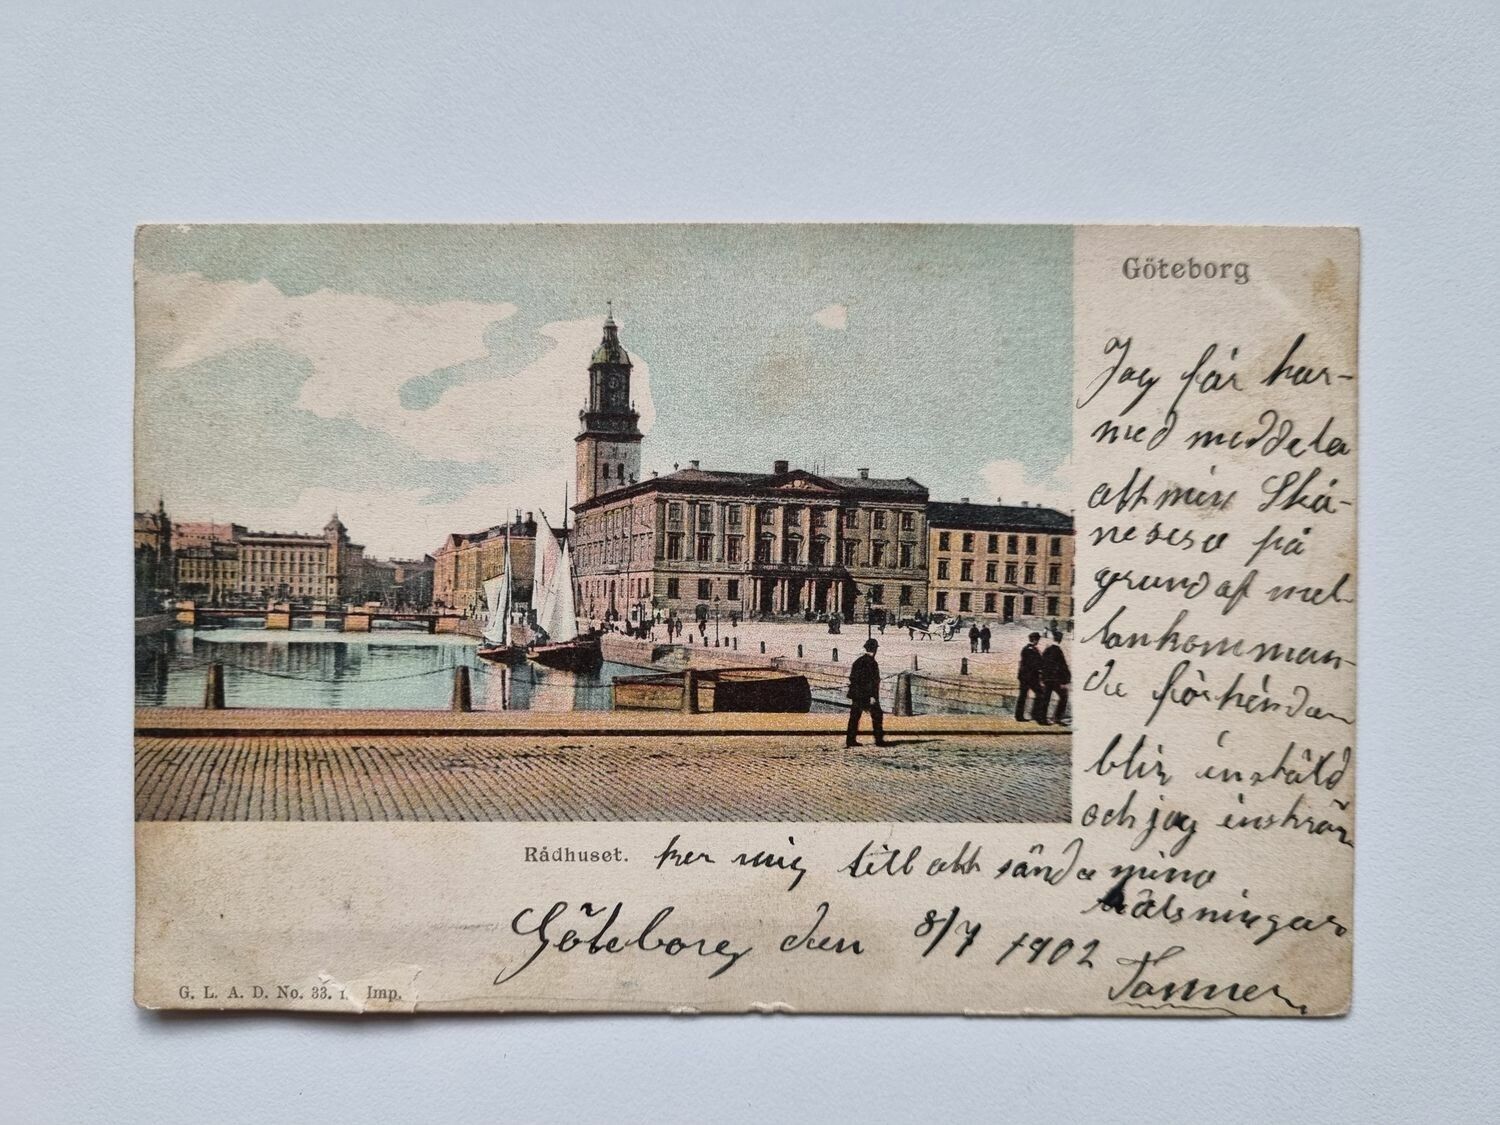 Göteborg
Jag får här-
med meddela
att min Skå-
neresa på
grund af mel-
lankomman-
de förhinder
blir inställd
och jag inskrän-
Rådhuset.
ker mig till att sända mina
hälsningar
Göteborg den 8/7 1902
G. L. A. D. No. 33. 1. Imp.